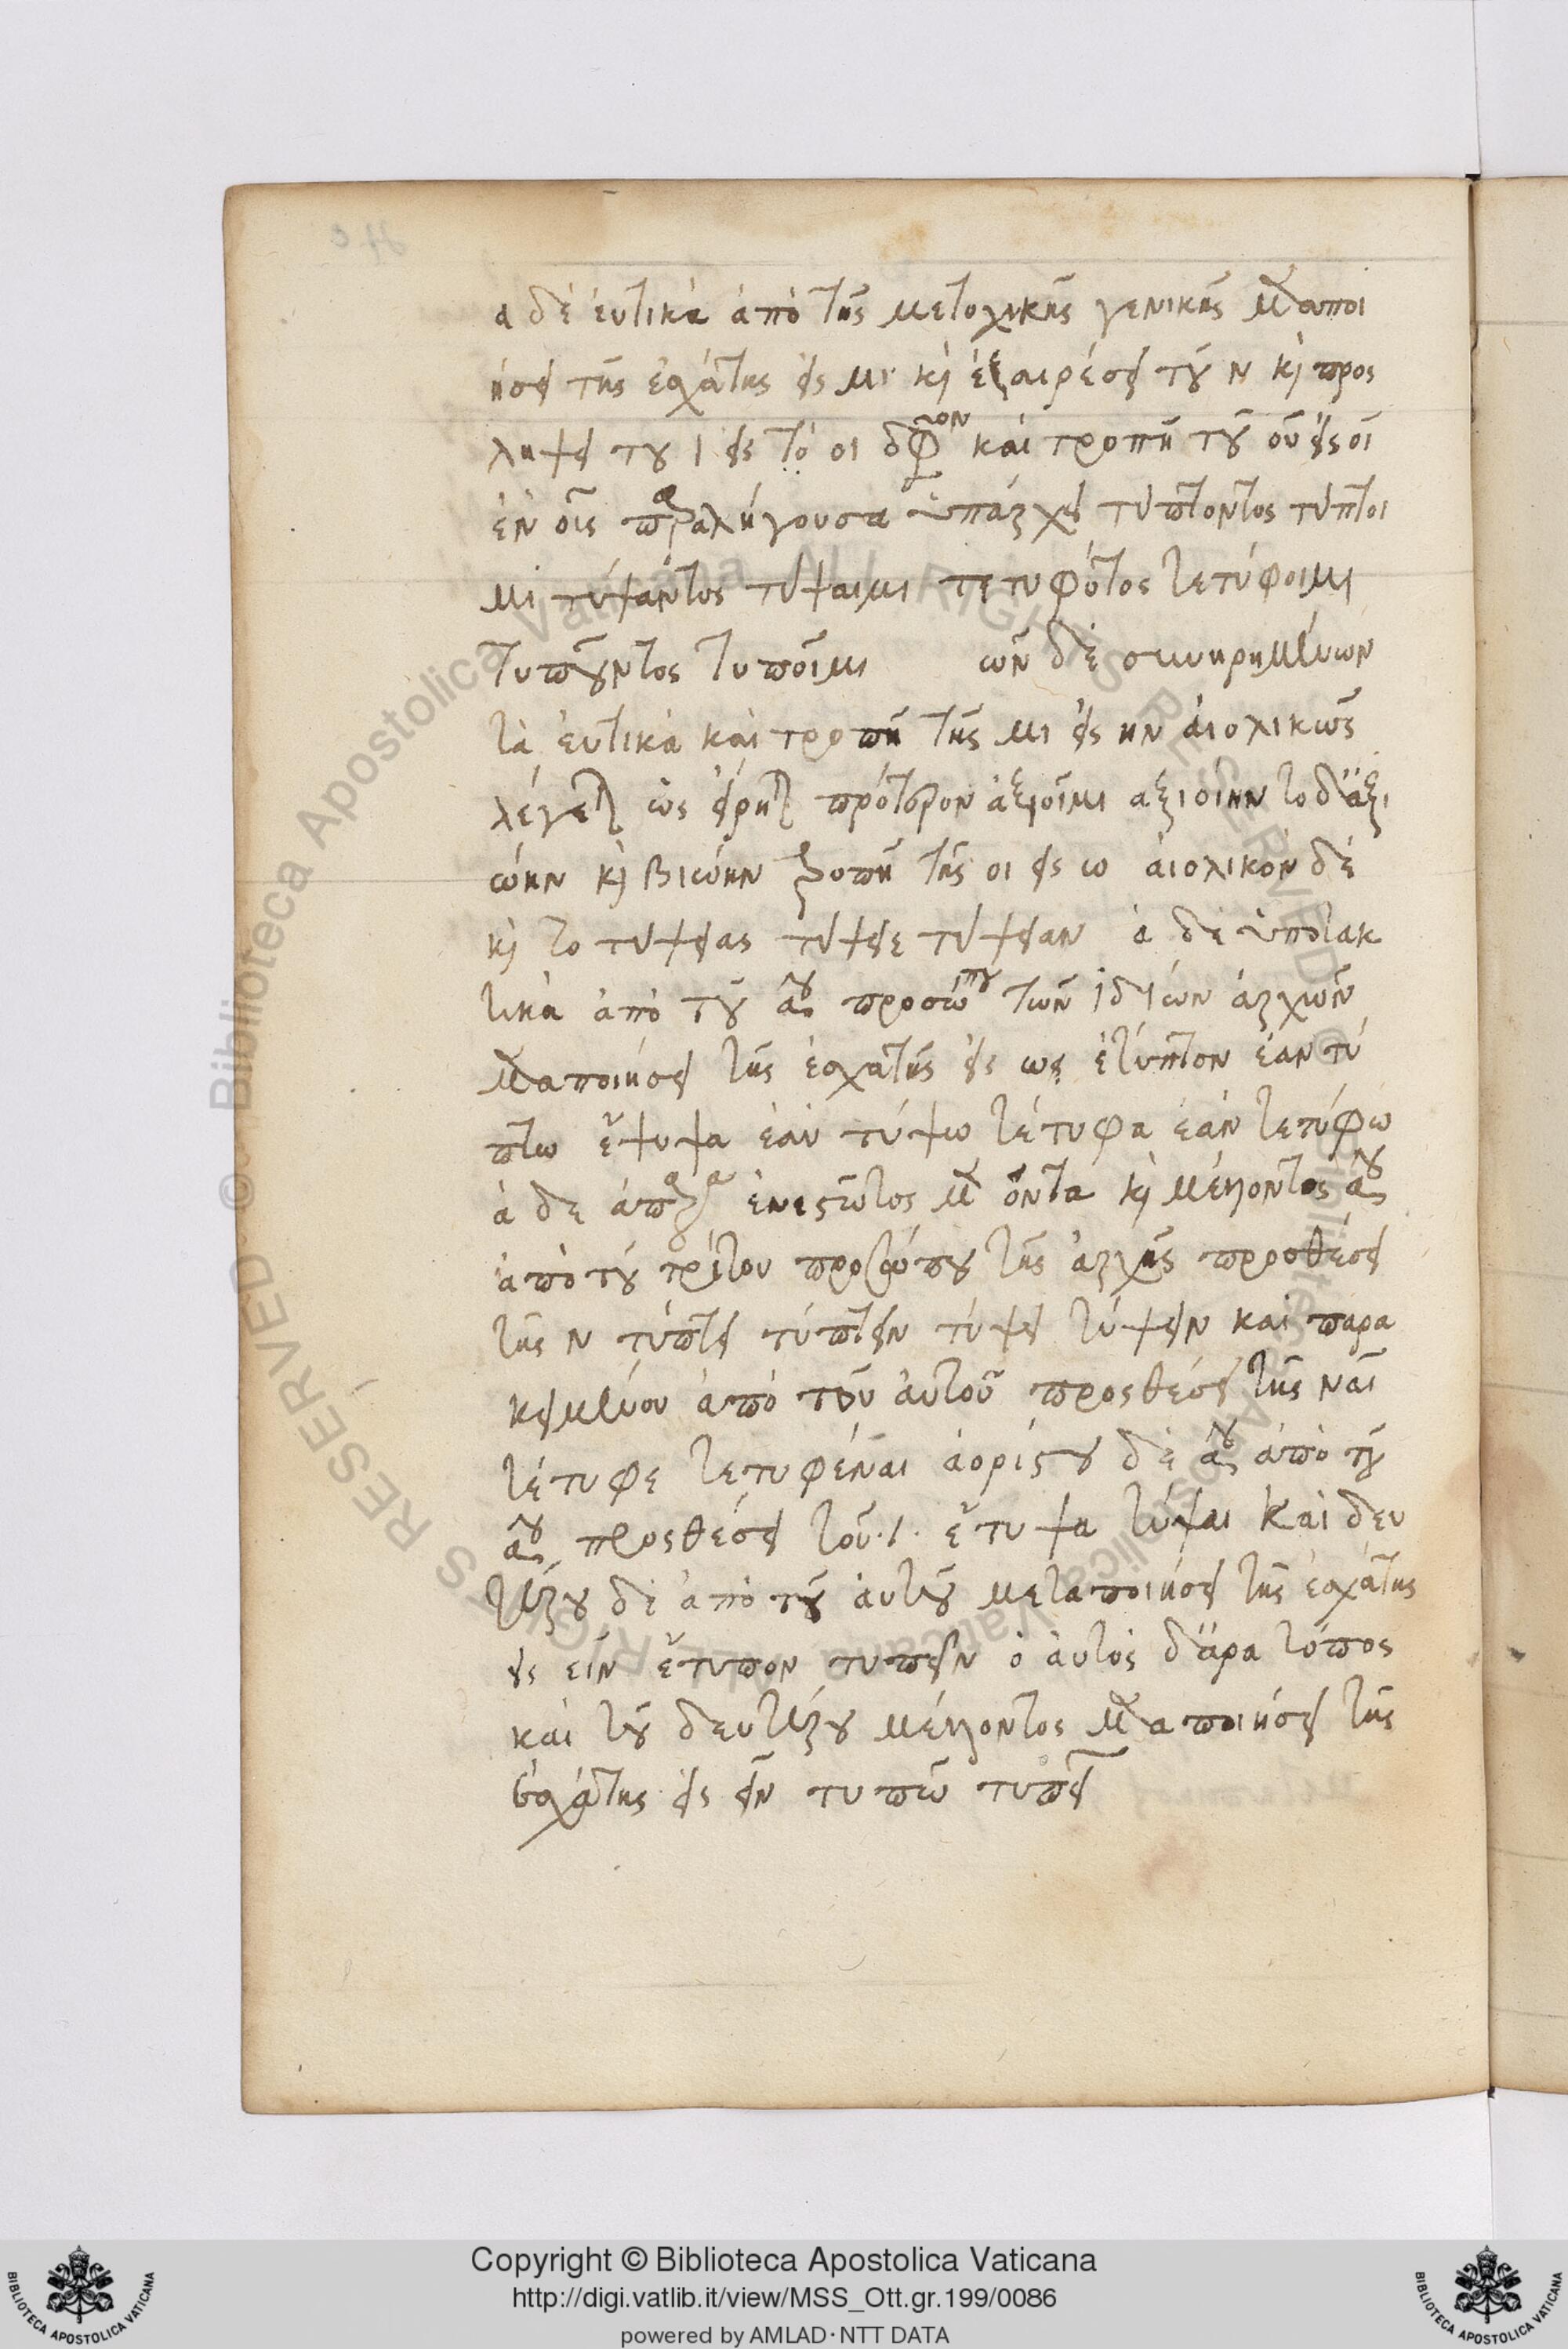 α δὲ ἐυτικὰ ἀπὸ τῆς μετοχικῆς γενικῆς μεταποι
ήσει τῆς ἐσχάτης εἰς μι κὶ ἐξαιρέσει τοῦ ν κὶ προς
λήψει του ι εἰς τὸ οι καὶ τροπῆ τοῦ οὐ εἰς οῖ
ἐν οἷς παραλήγουσα ὑπάρχει τύπτοντος τύπτοι
μι τύψαντος τύψαιμι τετυφότος τετύφοιμι
τυποῦντος τυποῖμι ῶν δὲ συνηρημένων
τὰ ἐυτικὰ καὶ τροπῆ τῆς μι εἰς ην ἀιολικῶς
λέγεται ὡς εἴρηται πρότερον ἀξιοῖμι ἀξιοίην το δ' ἀξι
ώην κὶ βιώην τροπῆ τῆς οι εἰς ω ἀιολικὸν δέ
κὶ το τύψειας τύψειε τύψειαν ἁ δὲ ὑποτακ
τικὰ ἀπὸ τοῦ αου προσώπου τῶν ἰδίων ἀρχῶν
μεταποιήσει τῆς ἐσχάτης εἰς ως ἔτυπτον ἐαν τύ
πτω ἔτυψα ἐὰν τύψω τέτυφα ἐὰν τετύφω
ἁ δε ἀπαρα ἐνεστῶτος μὲν ὄντα κὶ μέλλοντος αου
ἀπὸ τοῦ τρίτου προσώπου τῆς ἀρχῆς προσθέσει
τῆς ν τύπτει τύπτειν τύψει τύψειν καὶ παρα
κειμένου ἀπὸ τοῦ ἀυτοῦ προσθέσει τῆς ναι
τέτυφε τετυφέναι ἀορίστου δὲ αου ἀπὸ τοῦ
αου προσθέσει τοῦ ·ι· ἔτυψα τύψαι καὶ δευ
τέρου δὲ ἀπὸ τοῦ ἀυτοῦ μεταποιήσει τῆς ἐσχάτης
εἰς εῖν ἔτυπον τυπεῖν ὁ ἀυτὸς δ' ἄρα τύπος
καὶ τοῦ δευτέρου μέλλοντος μεταποιήσει τῆς
ἐσχάτης εἰς εῖν τυπῶ τυπεῖ
Copyright © Biblioteca Apostolica Vaticana
http://digi.vatlib.it/view/MSS_Ott.gr.199/0086
powered by AMLAD · NTT DATA